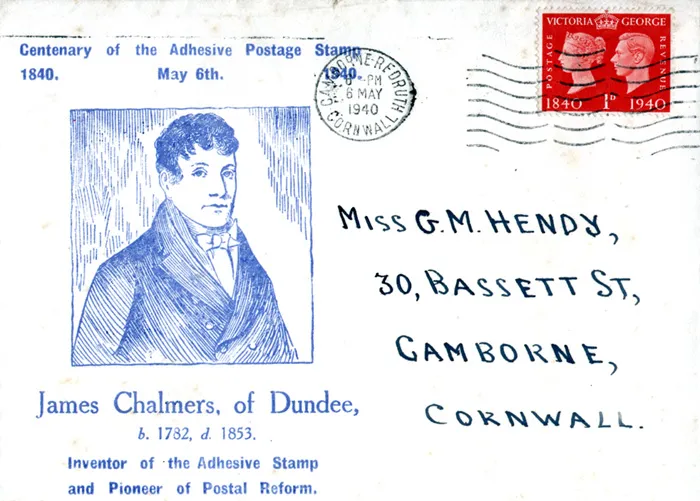 Centenary of the Adhesive Postage Stamp
1840. May 6th. 1940.
CAMBORNE-REDRUTH
6 - PM
6 MAY
1940
CORNWALL
VICTORIA GEORGE
POSTAGE
REVENUE
1840 1D 1940
MISS G.M. HENDY,
30, BASSETT ST,
CAMBORNE,
CORNWALL.
James Chalmers, of Dundee,
b. 1782, d. 1853.
Inventor of the Adhesive Stamp
and Pioneer of Postal Reform.